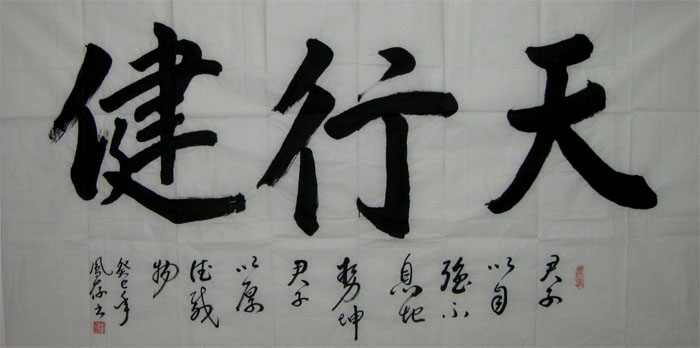 天行健
君子
以自
强不
息地
势坤
君子
以厚
德载
物
癸巳年